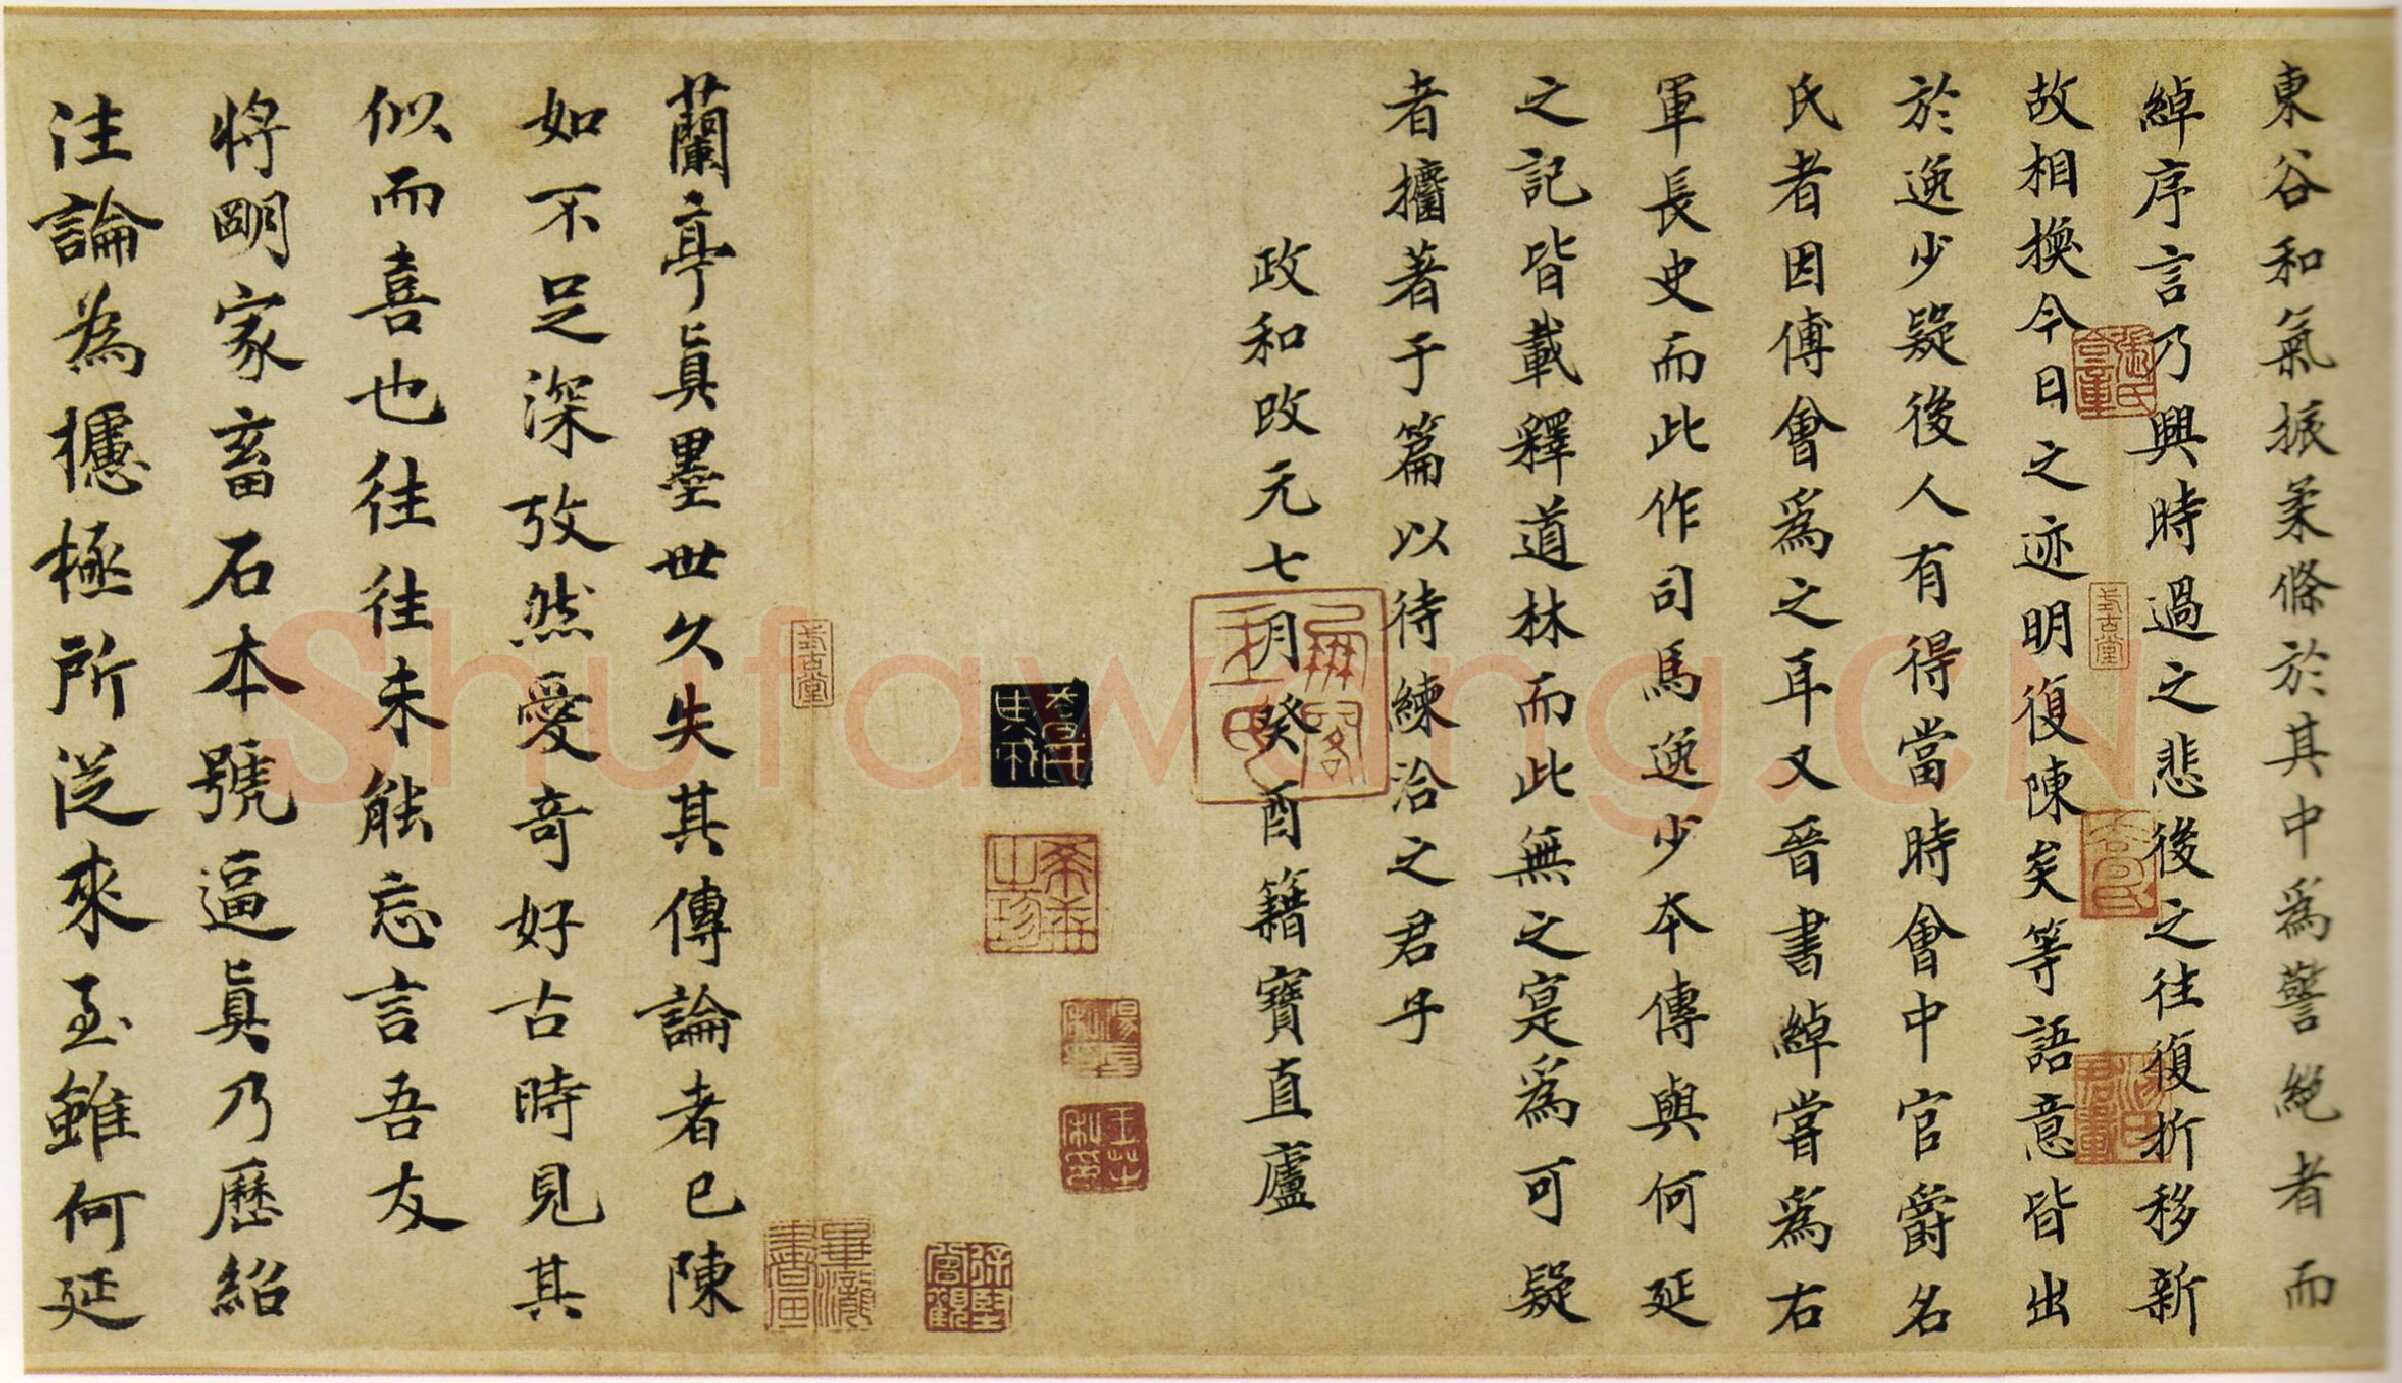 東谷和氣振柔條於其中為警絕者而
綽序言乃興時過之悲後之往復折移新
故相換今日之迹明復陳矣等語意皆出
於逸少疑後人有得當時會中官爵名
氏者因傅會為之耳又晉書綽嘗為右
軍長史而此作司馬逸少本傳與何延
之記皆載釋道林而此無之寔為可疑
者攟著于篇以待練洽之君乎
政和改元七月癸酉籍寶直廬
蘭亭真墨世久失其傳論者已陳
如不足深攷然愛奇好古時見其
似而喜也往往未能忘言吾友
將明家畜石本號逼真乃歷紹
注論為攄極所從來至雖何延
Shufawang.CN